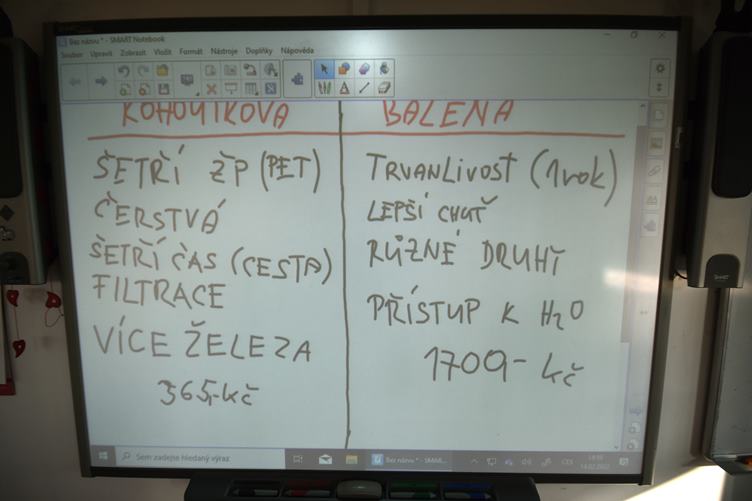 Bez názvu * - SMART Notebook
Soubor Upravit Zobrazit Vložit Formát Nástroje Doplňky Nápověda
KOHOUTKOVÁ
ŠETŘÍ ŽP (PET)
ČERSTVÁ
ŠETŘÍ ČAS (CESTA)
FILTRACE
VÍCE ŽELEZA
365,-KČ
BALENÁ
TRVANLIVOST (1 rok)
LEPŠÍ CHUŤ
RŮZNÉ DRUHY
PŘÍSTUP K H2O
1700,- KČ
Sem zadejte hledaný výraz
Bez názvu * - SMAR...
CES